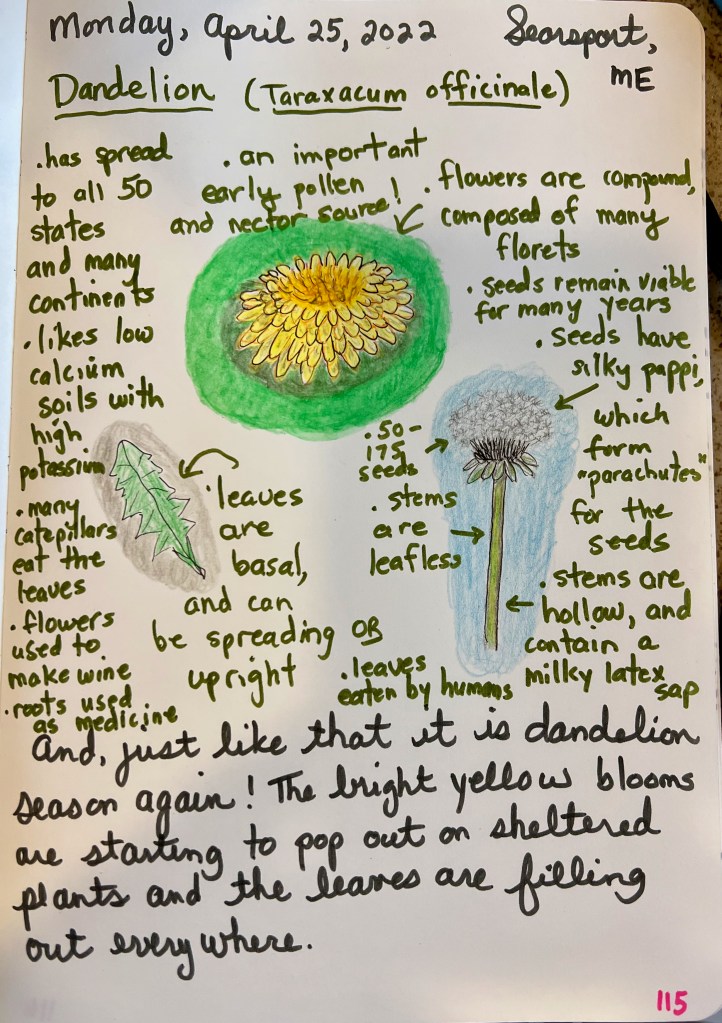 Monday, April 25, 2022
Searsport,
ME
Dandelion (Taraxacum officinale)
.has spread
to all 50
states
and many
continents
.likes low
calcium
soils with
high
potassium
.many
catepillars
eat the
leaves
.flowers
used to
make wine
.roots used
as medicine
.an important
early pollen
and nector source!
.flowers are compound,
composed of many
florets
.seeds remain viable
for many years
.seeds have
silky pappi,
which
form
"parachutes"
for the
seeds
.50-
175
seeds
.stems
are
leafless
.leaves
are
basal,
and can
be spreading OR
upright
.stems are
hollow, and
contain a
milky latex
sap
.leaves
eaten by humans
And, just like that it is dandelion
season again! The bright yellow blooms
are starting to pop out on sheltered
plants and the leaves are filling
out everywhere.
115